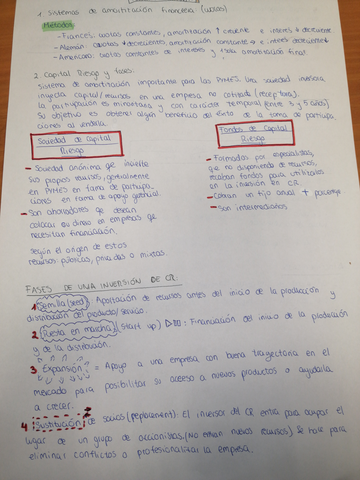 1. Sistemas de amortización financiera (cuotas)
Métodos
- Francés: cuotas constantes, amortización ↑ creciente e interés decreciente
- Alemán: cuotas decrecientes amortización constante e interés decreciente
- Americano: cuotas constantes de intereses y total amortización final
2. Capital Riesgo y fases:
sistema de amortización importante para las PYMES. Una sociedad inversora
inyecta capital/recursos en una empresa no cotizada (receptora).
la participación es minoritaria y con carácter temporal (entre 3 y 5 años)
Su objetivo es obtener algún beneficio del éxito de la toma de particip
aciones al venderla.
Sociedad de Capital
Riesgo
- Sociedad anónima que invierte
sus propios recursos, generalmente
en PYMES en toma de particip.
ciones en toma de apoyo gerencial.
- Son ahorradores que desean
colocar su dinero en empresas que
necesitan financiación.
según el origen de estos
recursos: públicas, privadas o mixtas.
Fondos de Capital
Riesgo
- Formados por especialistas,
que no disponiendo de recursos,
realizan fondos para utilizarlos
en la inversión en CR.
- Cobran un fijo anual + porcentaje
- Son intermediarios.
FASES DE UNA INVERSIÓN DE CR:
1 Semilla (seed): Aportación de recursos antes del inicio de la producción y
distribución del producto/servicio.
2 Puesta en marcha (start up) Financiación del inicio de la producción
y de la distribución.
3 Expansión = Apoyo a una empresa con buena trayectoria en el
mercado para posibilitar su acceso a nuevos productos o ayudarla
a crecer.
4 Sustitución de socios (replacement): El inversor del CR entra para ocupar el
lugar de un grupo de accionistas. (No entran nuevos recursos) Se hace para
eliminar conflictos o profesionalizar la empresa.